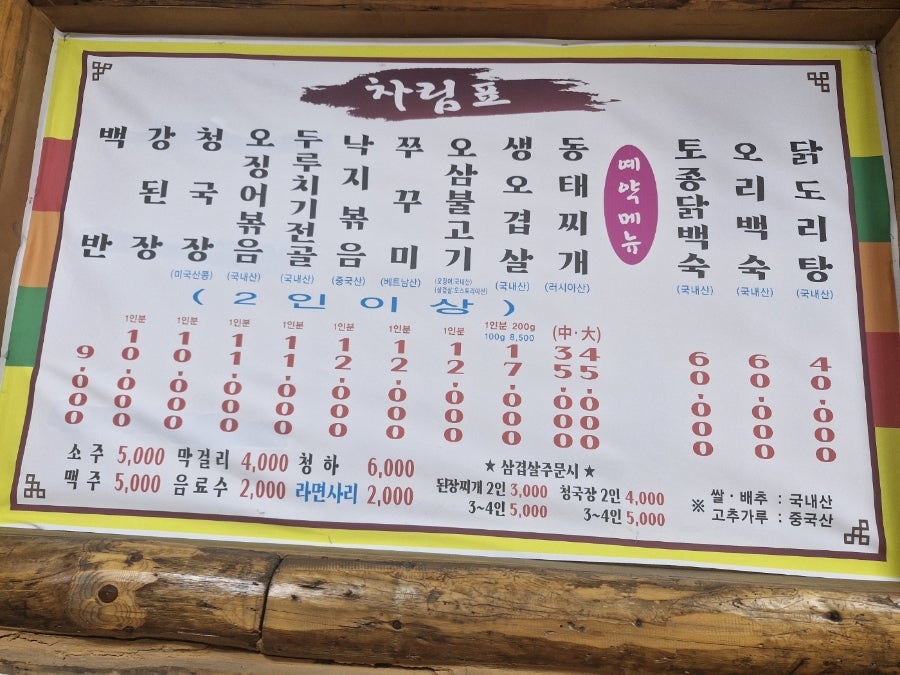 차림표
백반
강된장
청국장
(미국산콩)
오징어볶음
(국내산)
두루치기전골
(국내산)
낙지볶음
(중국산)
쭈꾸미
(베트남산)
오삼불고기
(오징어:국내산)
(삼겹살:오스트리아산)
생오겹살
(국내산)
동태찌개
(러시아산)
예약메뉴
토종닭백숙
(국내산)
오리백숙
(국내산)
닭도리탕
(국내산)
(2인이상)
9.000
1인분
10.000
1인분
10.000
1인분
11.000
1인분
11.000
1인분
12.000
1인분
12.000
1인분
12.000
1인분 200g
100g 8,500
17.000
(中·大)
35.000
45.000
60.000
60.000
40.000
소주 5,000 막걸리 4,000 청하 6,000
맥주 5,000 음료수 2,000 라면사리 2,000
★ 삼겹살주문시 ★
된장찌개 2인 3,000 청국장 2인 4,000
3~4인 5,000 3~4인 5,000
※ 쌀·배추 : 국내산
고추가루 : 중국산